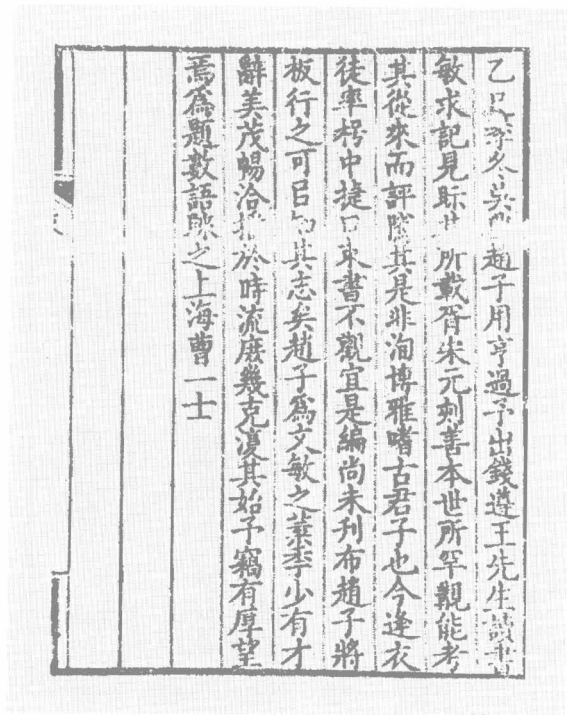 乙巳冬吳趙子用亨過予出錢遵王先生讀書
敏求記見眎其所載胥宋元刻善本世所罕覯能考
其從來而評隲其是非洵博雅嗜古君子也今逢衣
徒率枵中捷口束書不觀宜是編尚未刊布趙子將
板行之可㠯知其志矣趙子爲文敏之葉少有才
辭美茂暢洽播於時流庶幾克復其始予竊有厚望
焉爲題數語貽之上海曹一士